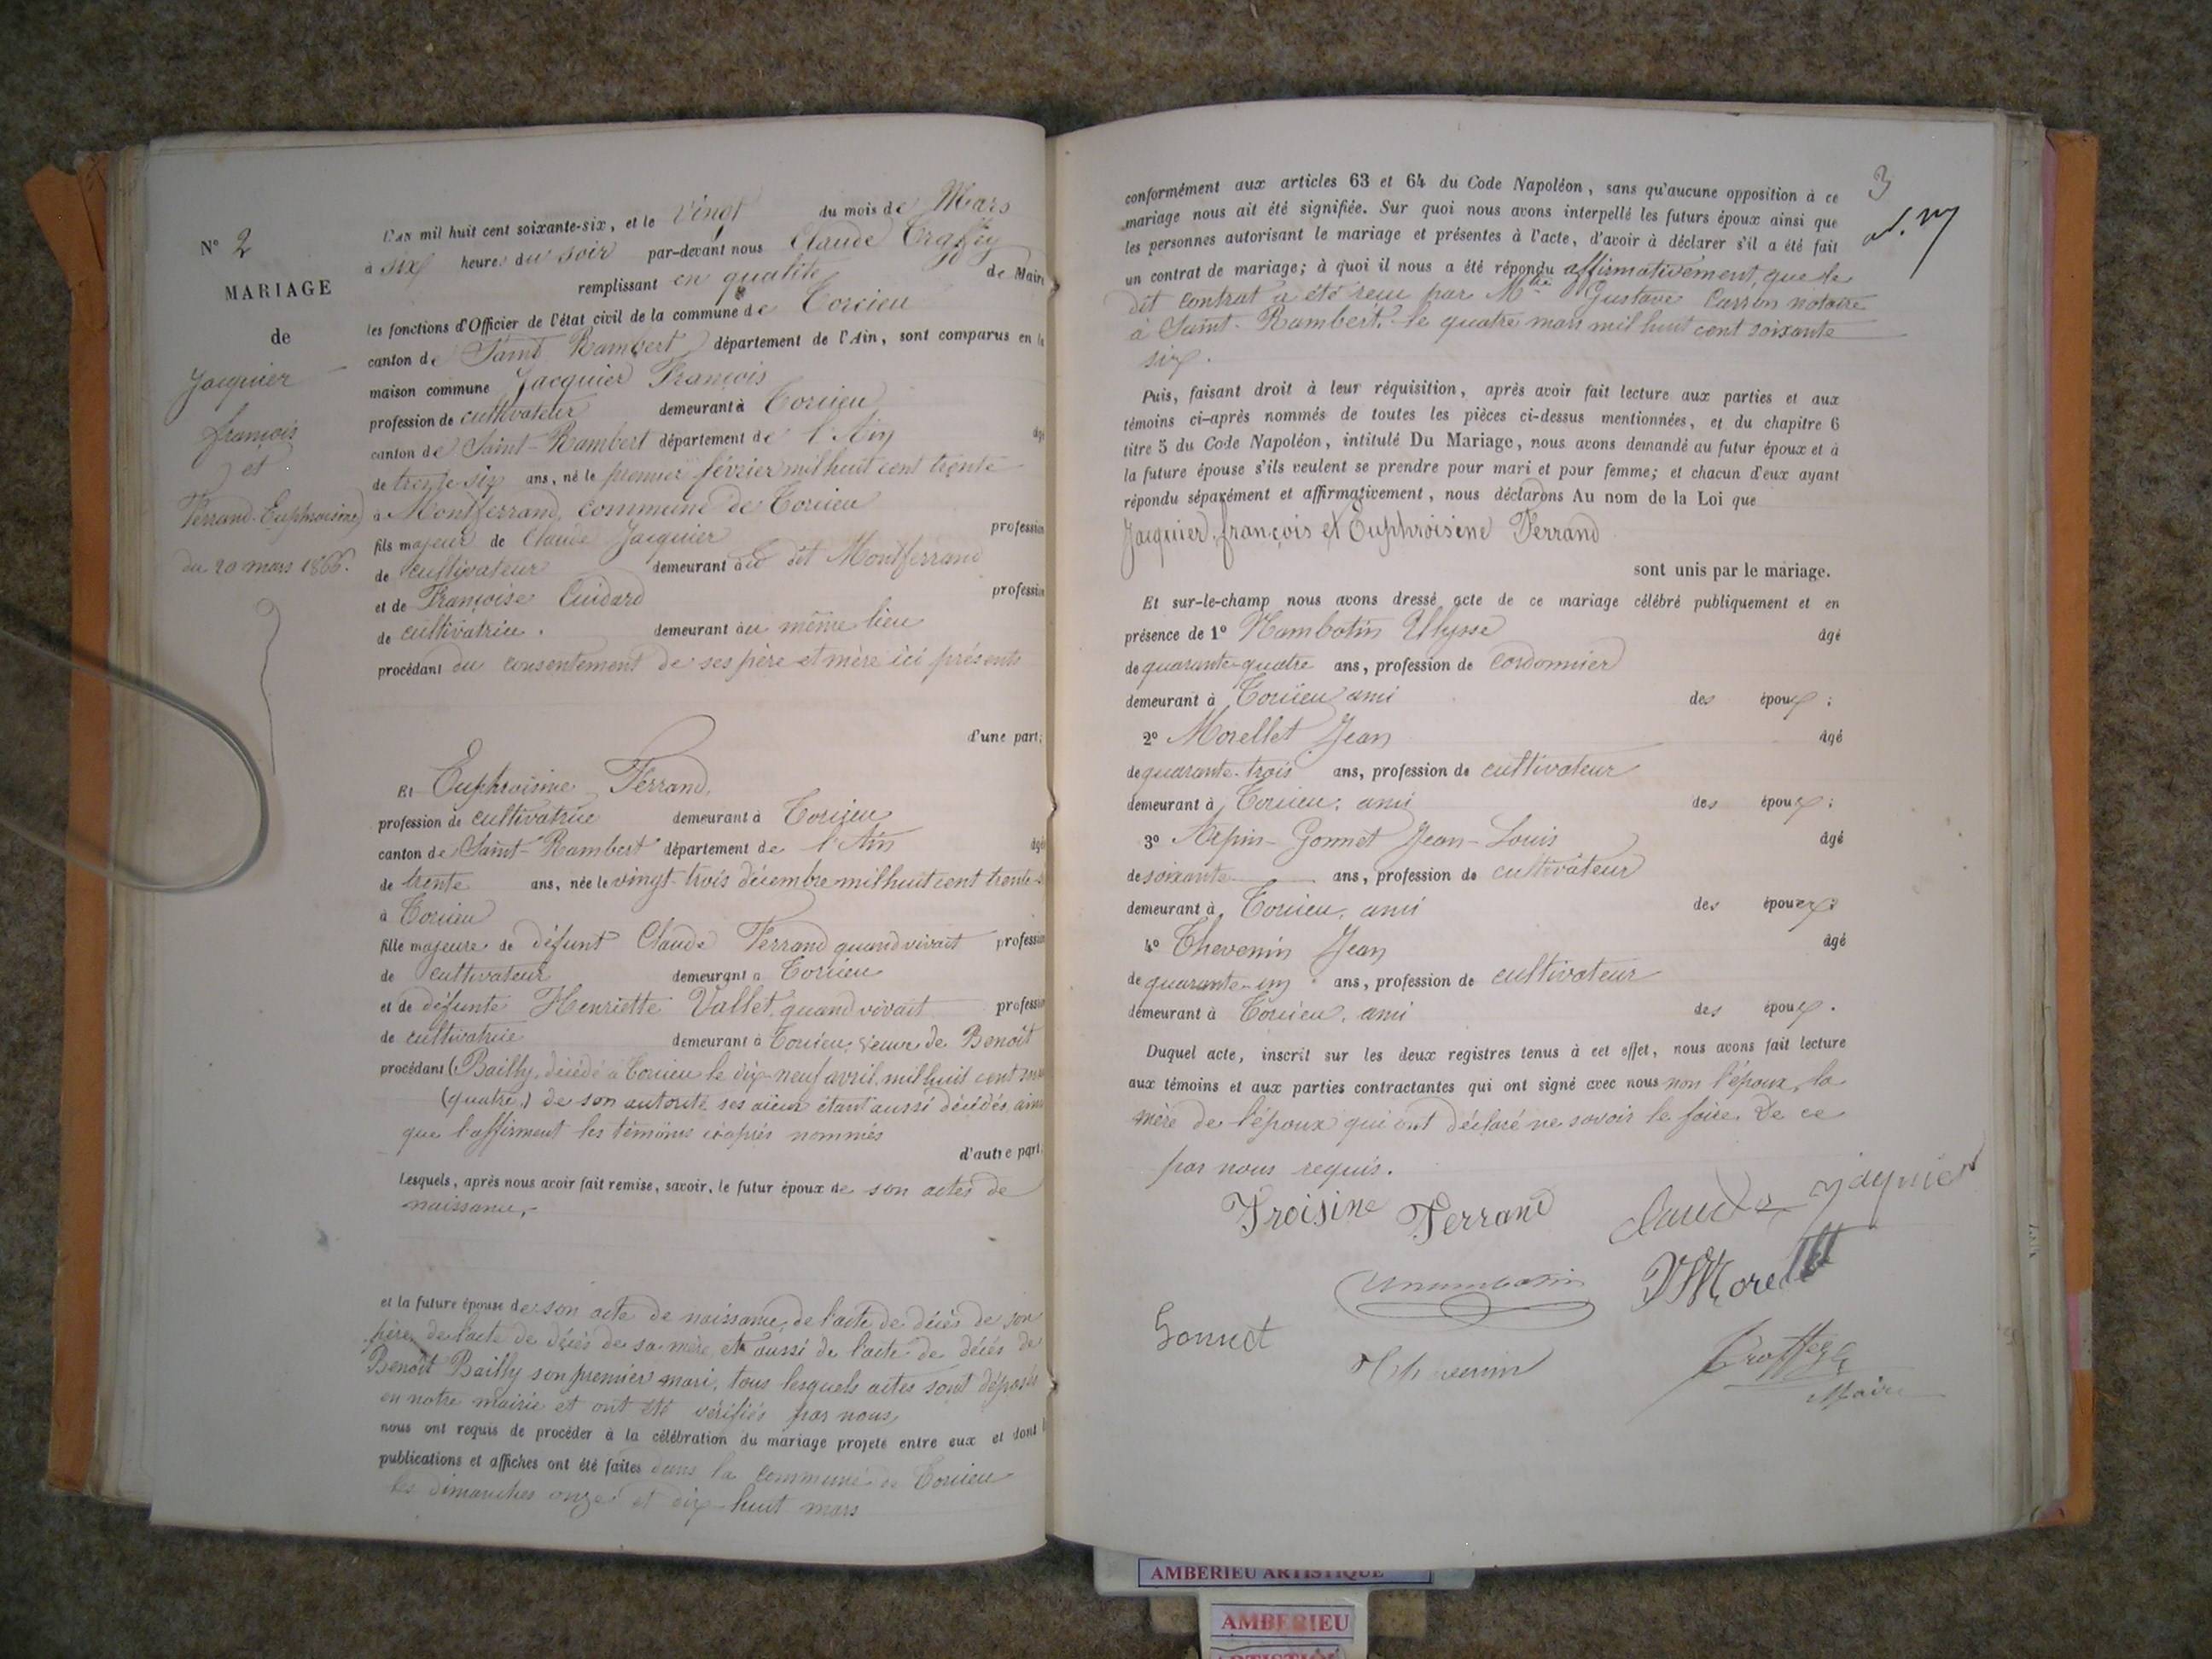 N° 2
MARIAGE
de
Jacquier
françois
et
Ferrand Euphroisine
du 20 mars 1866.
L'AN mil huit cent soixante-six, et le Vingt du mois de Mars
à six heures du soir par-devant nous Claude
remplissant en qualité de Maire
les fonctions d'Officier de l'état civil de la commune de Torcieu
canton de Saint Rambert département de l'Ain, sont comparus en la
maison commune Jacquier François
profession de cultivateur demeurant à Torcieu
canton de Saint-Rambert département de l'Ain âgé
de trente-six ans, né le premier février mil huit cent trente
à Montferrand, commune de Torcieu
fils majeur de Claude Jacquier profession
de cultivateur demeurant au dit Montferrand
et de Françoise Cuidard profession
de cultivatrice. demeurant au même lieu
procédant du consentement de ses père et mère ici présents
d'une part;
Et Euphroisine Ferrand,
profession de cultivatrice demeurant à Torcieu
canton de Saint-Rambert département de l'Ain âgée
de trente ans, née le vingt-trois décembre mil huit cent trente
à Torcieu
fille majeure de défunt Claude Ferrand quand vivait profession
de cultivateur demeurant à Torcieu
et de défunte Henriette Vallet, quand vivait profession
de cultivatrice demeurant à Torcieu, veuve de Benoît
procédant (Bailly, décédé à Torcieu le dix-neuf avril, mil huit cent
(quatre,) de son autorité ses aïeux étant aussi décédés, ainsi
que l'affirment les témoins ci-après nommés
d'autre part.
Lesquels, après nous avoir fait remise, savoir, le futur époux de son actes de
naissance,
et la future épouse de son acte de naissance, de l'acte de décès de son
père, de l'acte de décès de sa mère, et aussi de l'acte de décès de
Benoît Bailly son premier mari, tous lesquels actes sont déposés
en notre mairie et ont été vérifiés par nous,
nous ont requis de procéder à la célébration du mariage projeté entre eux et dont les
publications et affiches ont été faites dans la commune de Torcieu
les dimanches onze et dix-huit mars
3
conformément aux articles 63 et 64 du Code Napoléon, sans qu'aucune opposition à ce
mariage nous ait été signifiée. Sur quoi nous avons interpellé les futurs époux ainsi que
les personnes autorisant le mariage et présentes à l'acte, d'avoir à déclarer s'il a été fait
un contrat de mariage; à quoi il nous a été répondu affirmativement, que le
dit contrat a été reçu par Mtre Gustave Carron notaire
à Saint-Rambert, le quatre mars mil huit cent soixante
six.
Puis, faisant droit à leur réquisition, après avoir fait lecture aux parties et aux
témoins ci-après nommés de toutes les pièces ci-dessus mentionnées, et du chapitre 6
titre 5 du Code Napoléon, intitulé Du Mariage, nous avons demandé au futur époux et à
la future épouse s'ils veulent se prendre pour mari et pour femme; et chacun d'eux ayant
répondu séparément et affirmativement, nous déclarons Au nom de la Loi que
Jacquier françois et Euphroisene Ferrand
sont unis par le mariage.
Et sur-le-champ nous avons dressé acte de ce mariage célébré publiquement et en
présence de 1° Nambotin Ulysse âgé
de quarante-quatre ans, profession de cordonnier
demeurant à Torcieu ami des époux;
2° Morellet Jean âgé
de quarante-trois ans, profession de cultivateur
demeurant à Torcieu, ami des époux;
3° Arpin-Gonnet Jean-Louis âgé
de soixante ans, profession de cultivateur
demeurant à Torcieu, ami des époux;
4° Thevenin Jean âgé
de quarante-un ans, profession de cultivateur
demeurant à Torcieu, ami des époux.
Duquel acte, inscrit sur les deux registres tenus à cet effet, nous avons fait lecture
aux témoins et aux parties contractantes qui ont signé avec nous non l'époux, la
mère de l'époux qui ont déclaré ne savoir le faire. De ce
par nous requis.
Froisine Ferrand
Claude jaquier
Morellet
Gonnet
Thevenin
Maire
AMBERIEU ARTISTIQUE
AMBERIEU
ARTISTIQUE